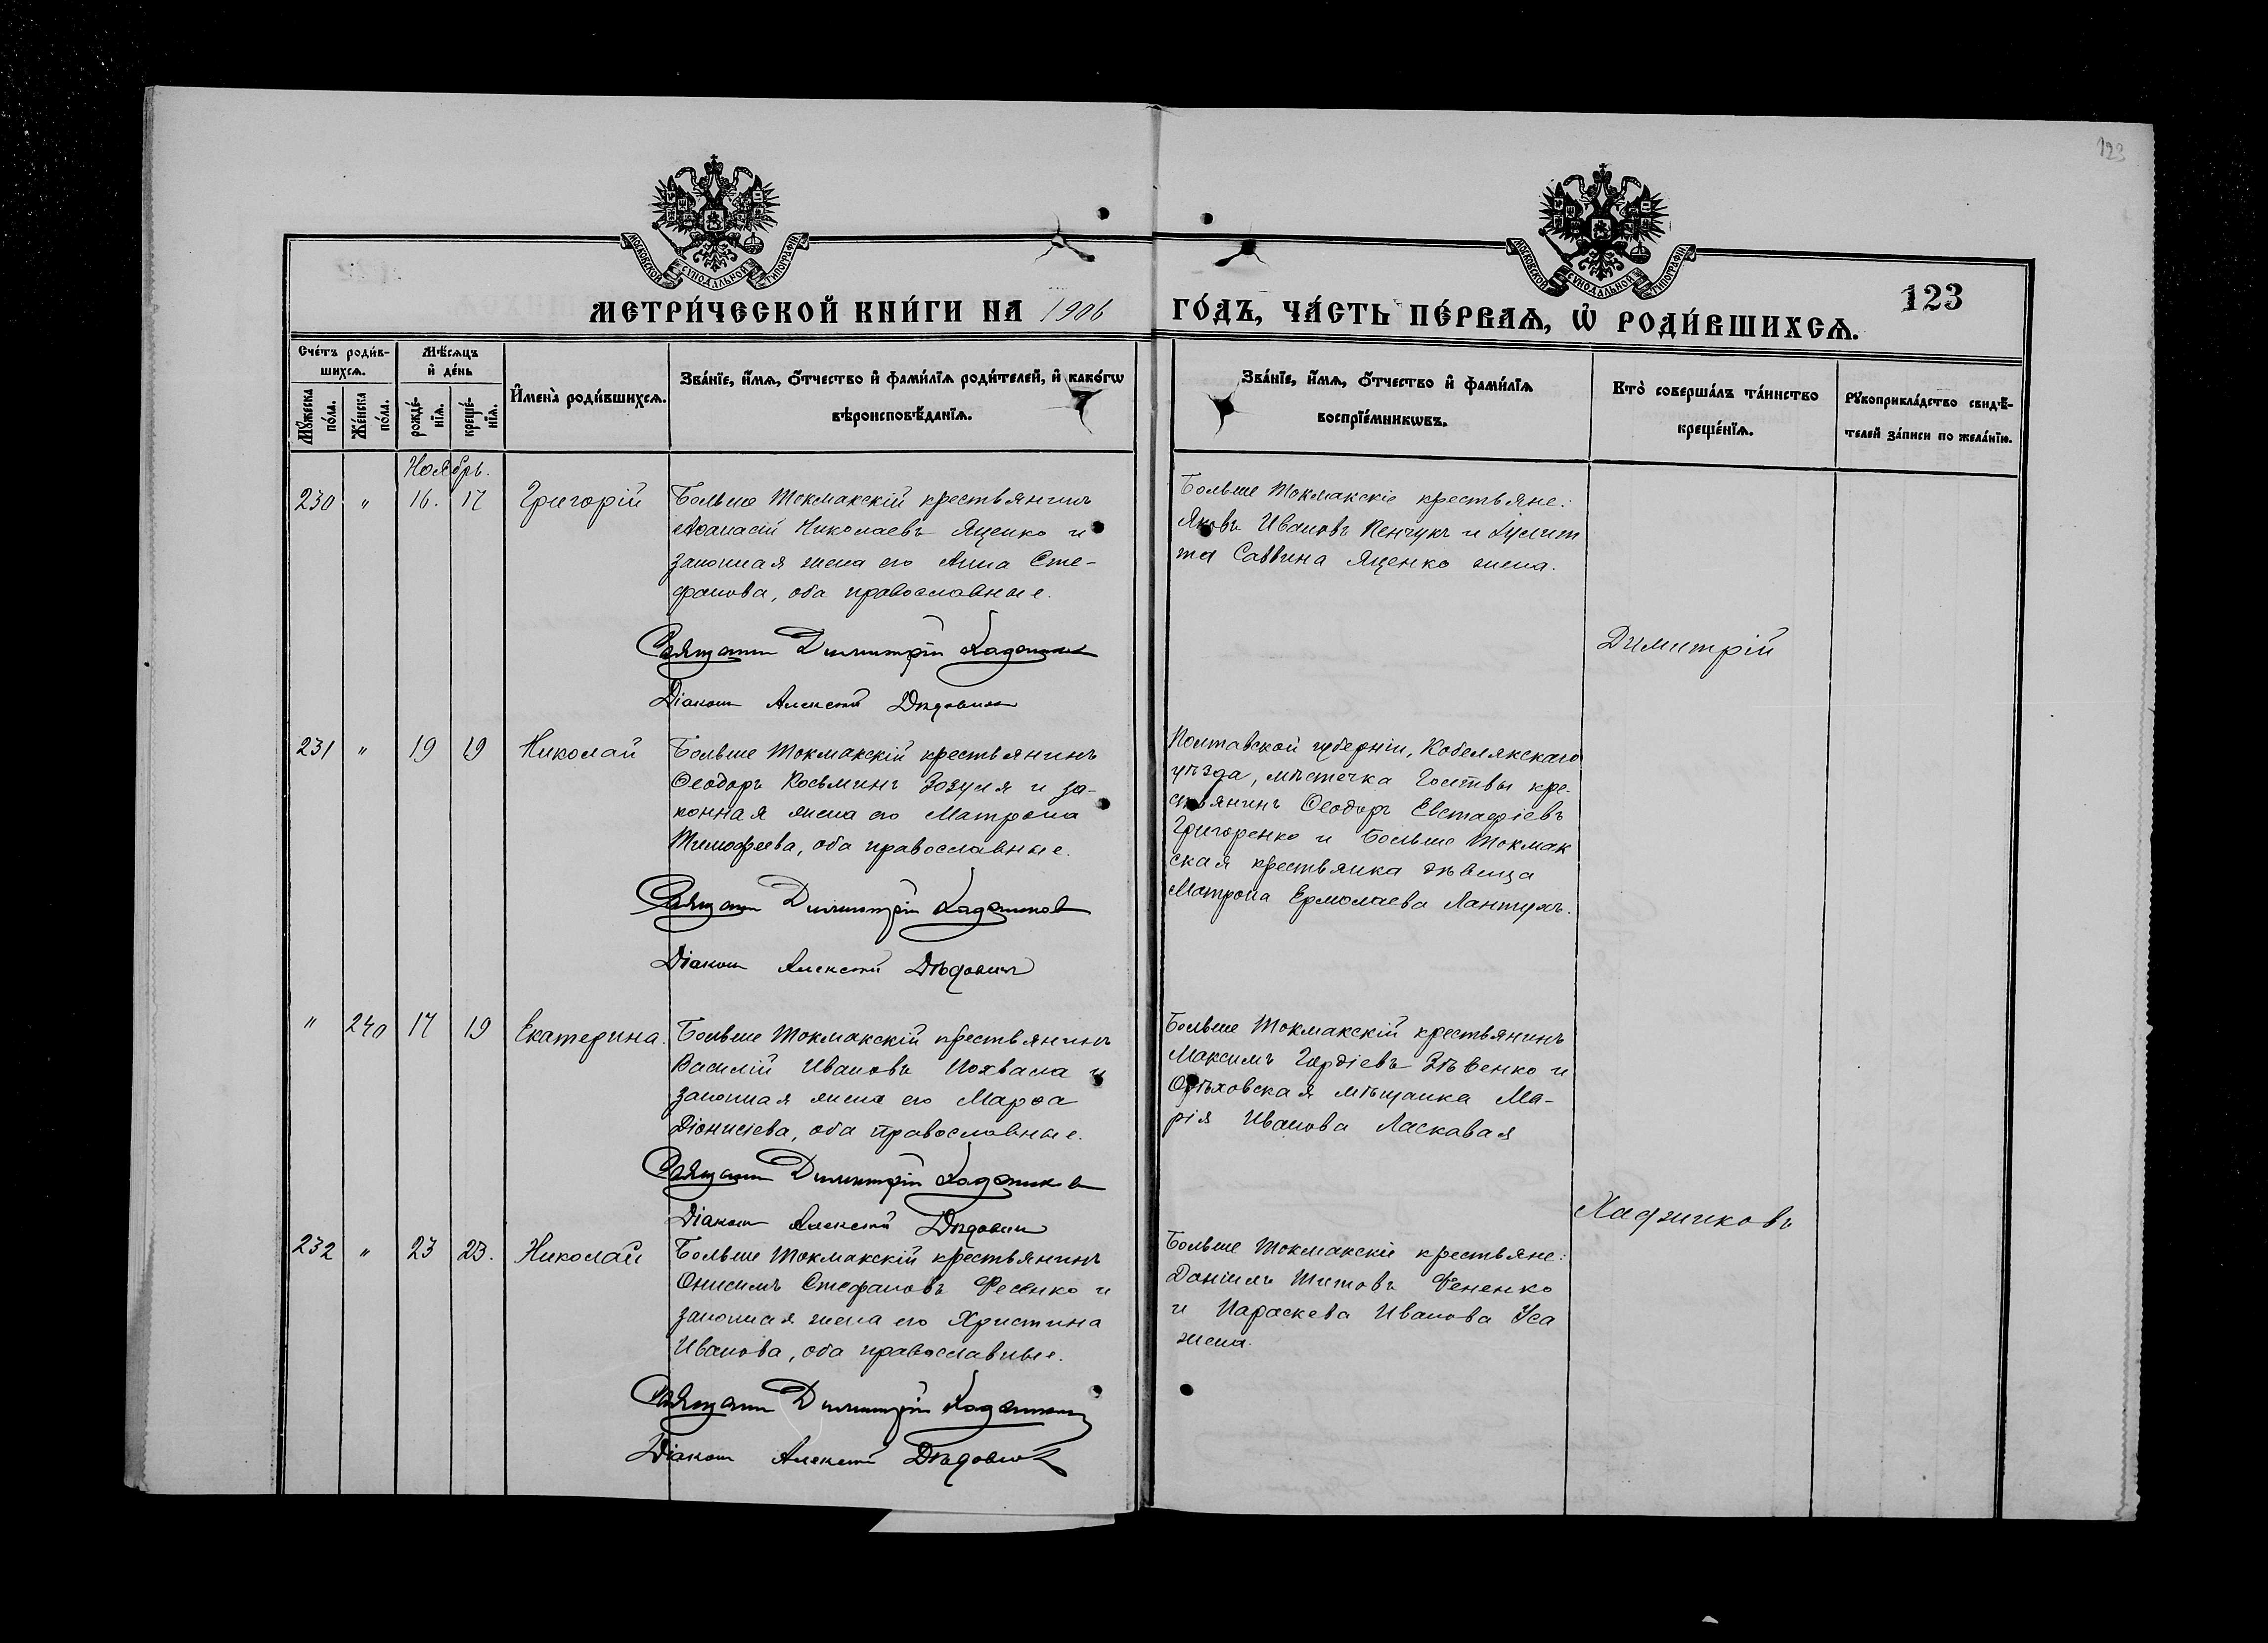 123
МОСКОВСКОЙ СѴНОДАЛЬНОЙ ТИПОГРАФІИ
МОСКОВСКОЙ СѴНОДАЛЬНОЙ ТИПОГРАФІИ
МЕТРИ́ЧЕСКОЙ КНИ́ГИ НА 1906
ГО́ДЪ, ЧА́СТЬ ПЕ́РВАѦ, Ѡ҆ РОДИ́ВШИХСѦ.
123
Сче́тъ роди́в-
шихсѧ.
Мꙋ́жеска по́ла.
Же́нска по́ла.
Мѣ́сѧцъ
и҆ де́нь
рожде́-
нїѧ.
креще́-
нїѧ.
И҆мена̀ роди́вшихсѧ.
Зва́нїе, и҆́мѧ, ѻ҆́тчество и҆ фами́лїѧ роди́телей, и҆ како́гѡ
вѣроисповѣ́данїѧ.
Зва́нїе, и҆́мѧ, ѻ҆́тчество и҆ фами́лїѧ
воспрїе́мникѡвъ.
Кто̀ соверша́лъ та́инство
креще́нїѧ.
Рꙋкоприкла́дство свидѣ́-
телей за́писи по жела́нїю.
Ноябрь.
230 " 16. 17 Григорій
Больше Токмакскій крестьянинъ
Аѳанасій Николаевъ Яценко и
законная жена его Анна Сте-
фанова, оба православные.
Священ Димитрій Хаджинов
Діакон Алексѣй Дѣдович
Больше Токмакскіе крестьяне:
Яковъ Ивановъ Пенчукъ и Іулит
та Саввина Яценко жена.
Димитрій
231 " 19 19 Николай
Больше Токмакскій крестьянинъ
Ѳеодоръ Косьминъ Зозуля и за-
конная жена его Матрона
Тимофеева, оба православные.
Священ Димитрій Хаджинов
Діакон Алексѣй Дѣдович
Полтавской губерніи, Кобелякскаго
уѣзда, мѣстечка Голтвы кре-
стьянинъ Ѳеодоръ Евстафіевъ
Григоренко и Больше Токмак
ская крестьянка дѣвица
Матрона Ермолаева Лантухъ.
" 240 17 19 Екатерина.
Больше Токмакскій крестьянинъ
Василій Ивановъ Похвала и
законная жена его Марѳа
Діонисіева, оба православные.
Священ Димитрій Хаджинов
Діакон Алексѣй Дѣдович
Больше Токмакскій крестьянинъ
Максимъ Гордіевъ Зѣвенко и
Орѣховская мѣщанка Ма-
рія Иванова Ласкавая
Хаджиновъ
232 " 23 23. Николай
Больше Токмакскій крестьянинъ
Онисимъ Стефановъ Фесенко и
законная жена его Христина
Иванова, оба православные.
Священ Димитрій Хаджинов
Діакон Алексѣй Дѣдович
Больше Токмакскіе крестьяне:
Даніилъ Титовъ Фененко
и Параскева Иванова Уса
жена.